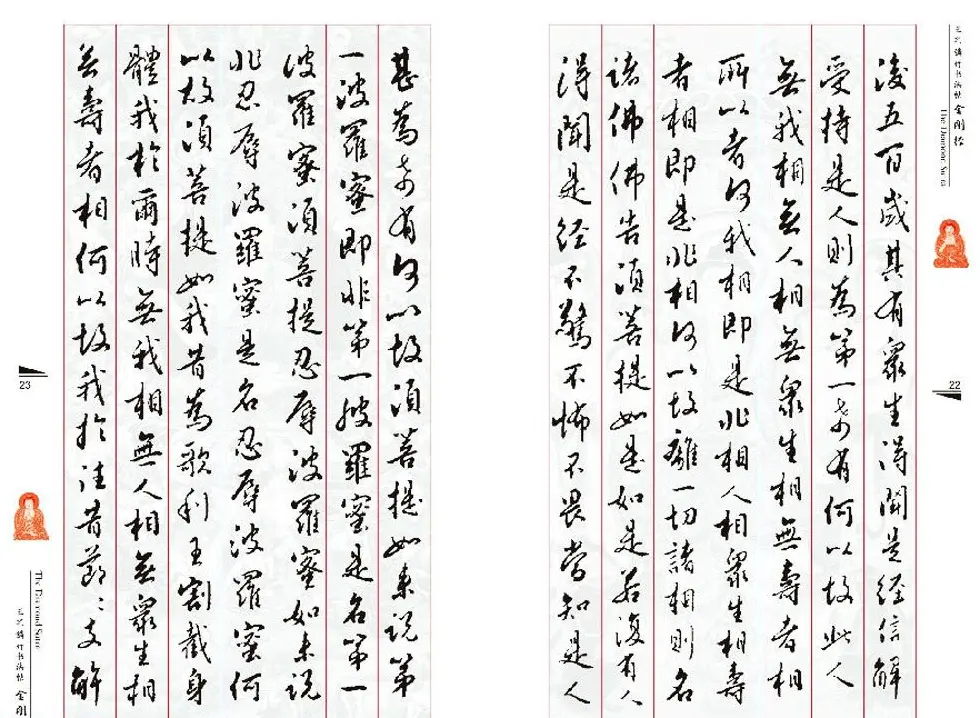 金刚经
The Diamond Sutra
22
後五百歲其有眾生得聞是經信解
受持是人則為第一希有何以故此人
無我相無人相無眾生相無壽者相
所以者何我相即是非相人相眾生相壽
者相即是非相何以故離一切諸相則名
諸佛佛告須菩提如是如是若復有人
得聞是經不驚不怖不畏當知是人
甚為希有何以故須菩提如來說第
一波羅蜜即非第一波羅蜜是名第一
波羅蜜須菩提忍辱波羅蜜如來說
非忍辱波羅蜜是名忍辱波羅蜜何
以故須菩提如我昔為歌利王割截身
體我於爾時無我相無人相無眾生相
無壽者相何以故我於往昔節々支解
23
The Diamond Sutra
金刚